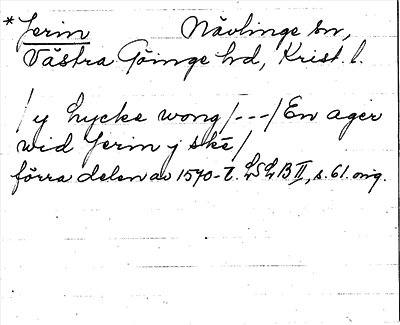 *Jerin Nävlinge sn,
Västra Göinge hd, Krist. l.
/y hycke wong/---/En ager
wid Jerin j ske/
förra delen av 1570-t. LSLB II, s. 61. orig.